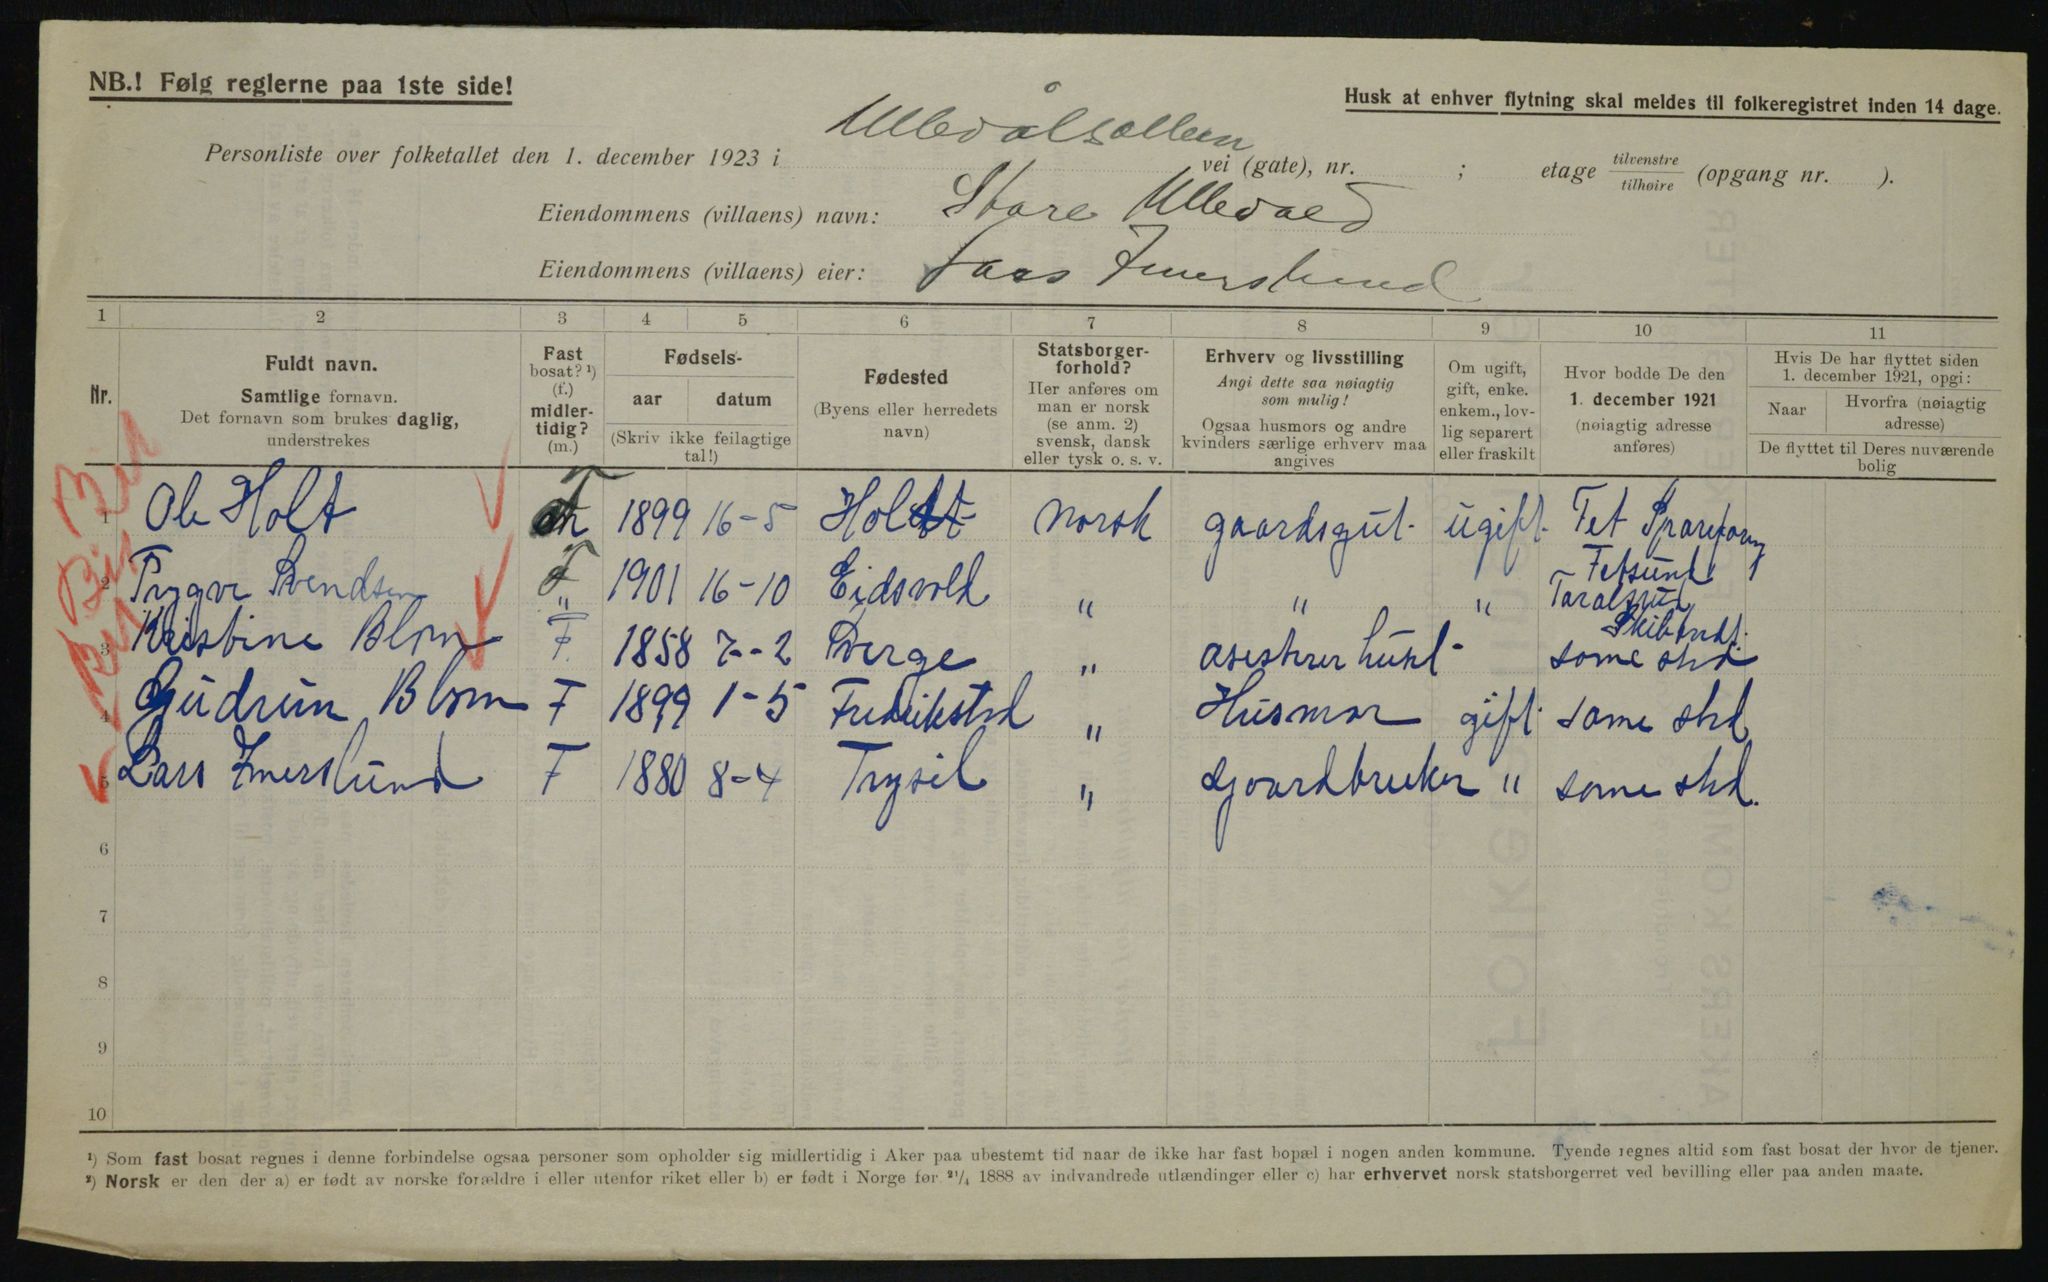 NB.! Følg reglerne paa 1ste side!
Husk at enhver flytning skal meldes til folkeregistret inden 14 dage.
Personliste over folketallet den 1. december 1923 i Ullevålsalleen vei (gate), nr. ; etage tilvenstre/tilhøire (opgang nr. ).
Eiendommens (villaens) navn: Store Ullevaal
Eiendommens (villaens) eier: Lars Imerslund
1 2 3 4 5 6 7 8 9 10 11
Nr.
Fuldt navn.
Samtlige fornavn.
Det fornavn som brukes daglig,
understrekes
Fast
bosat? ¹)
(f.)
midler-
tidig?
(m.)
Fødsels-
aar datum
(Skriv ikke feilagtige
tal!)
Fødested
(Byens eller herredets
navn)
Statsborger-
forhold?
Her anføres om
man er norsk
(se anm. 2)
svensk, dansk
eller tysk o. s. v.
Erhverv og livsstilling
Angi dette saa nøiagtig
som mulig!
Ogsaa husmors og andre
kvinders særlige erhverv maa
angives
Om ugift,
gift, enke.
enkem., lov-
lig separert
eller fraskilt
Hvor bodde De den
1. december 1921
(nøiagtig adresse
anføres)
Hvis De har flyttet siden
1. december 1921, opgi:
Naar
Hvorfra (nøiagtig
adresse)
De flyttet til Deres nuværende
bolig
1 Ole Holt 1899 16-5 Holt norsk gaardsgut ugift Fet
Fetsund
2 Trygve Svendsen F " 1901 16-10 Eidsvold " " "
3 Kristine Blom F. 1858 7-2 Sverge " same sted
4 Gudrun Blom F 1899 1-5 Fredrikstad " Husmor gift same sted
5 Lars Imerslund F 1880 8-4 Trysil " gaardbruker " same sted.
6
7
8
9
10
¹) Som fast bosat regnes i denne forbindelse ogsaa personer som opholder sig midlertidig i Aker paa ubestemt tid naar de ikke har fast bopæl i nogen anden kommune. Tyende regnes altid som fast bosat der hvor de tjener.
²) Norsk er den der a) er født av norske forældre i eller utenfor riket eller b) er født i Norge før ²¹/₄ 1888 av indvandrede utlændinger eller c) har erhvervet norsk statsborgerret ved bevilling eller paa anden maate.